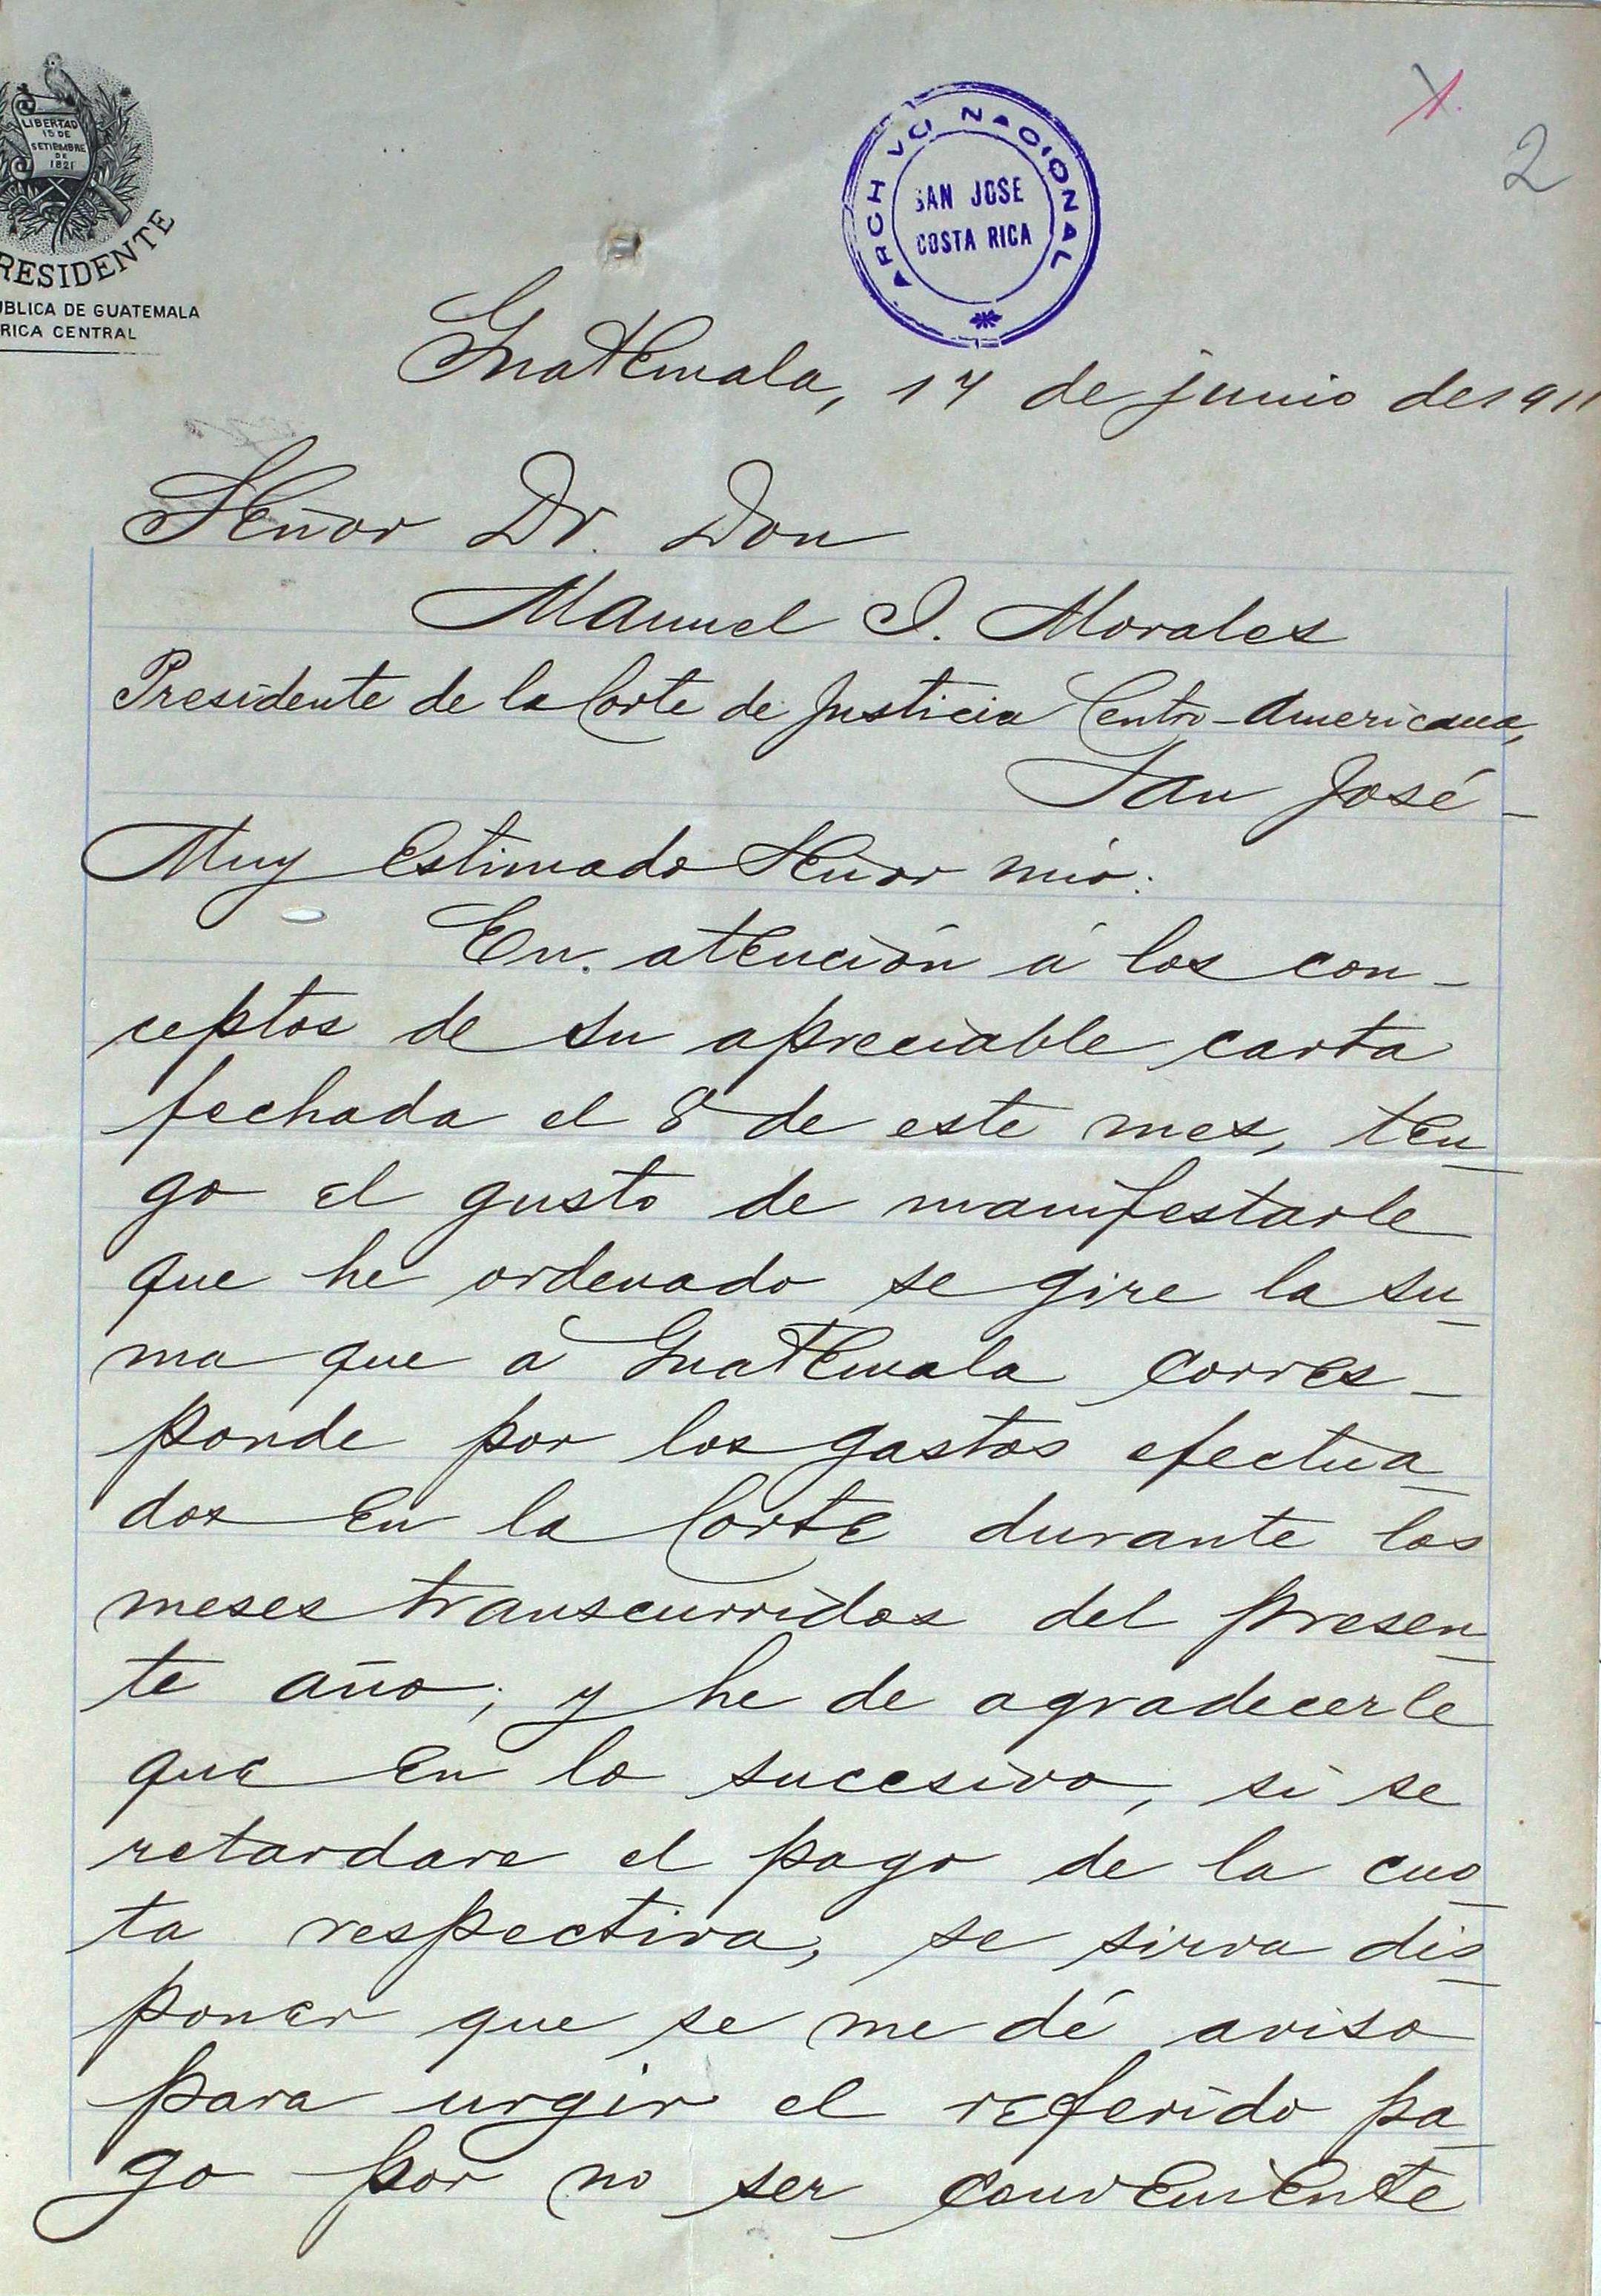 LIBERTAD
15 DE
SETIEMBRE
DE
1821
RESIDENTE
UBLICA DE GUATEMALA
RICA CENTRAL
ARCHIVO NACIONAL
SAN JOSE
COSTA RICA
1.
2
Guatemala, 17 de junio de 1911
Señor Dr. Don
Manuel I. Morales
Presidente de la Corte de Justicia Centro-Americana,
San José-
Muy estimado Señor mío:
En atención á los con-
ceptos de su apreciable carta
fechada el 8 de este mes, ten-
go el gusto de manifestarle
que he ordenado se gire la su-
ma que á Guatemala corres-
ponde por los gastos efectua-
dos en la Corte durante los
meses transcurridos del presen-
te año; y he de agradecerle
que en lo sucesivo, si se
retardare el pago de la cuo-
ta respectiva, se sirva dis-
poner que se me dé aviso
para urgir el referido pa-
go por no ser conveniente